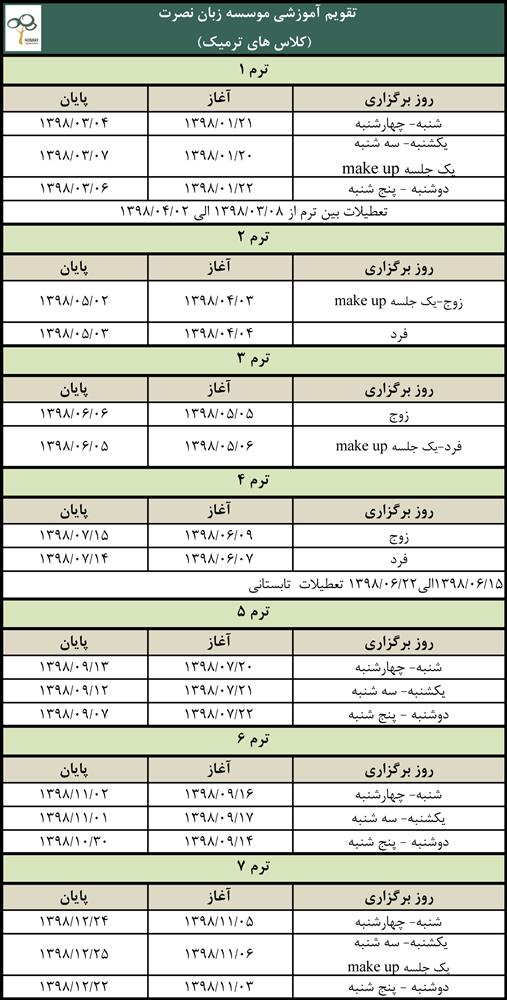 تقویم آموزشی موسسه زبان نصرت
(کلاس های ترمیک)
NOSRAT
ترم ۱
روز برگزاری آغاز پایان
شنبه- چهارشنبه ۱۳۹۸/۰۱/۲۱ ۱۳۹۸/۰۳/۰۴
یکشنبه- سه شنبه
یک جلسه make up ۱۳۹۸/۰۱/۲۰ ۱۳۹۸/۰۳/۰۷
دوشنبه - پنج شنبه ۱۳۹۸/۰۱/۲۲ ۱۳۹۸/۰۳/۰۶
تعطیلات بین ترم از ۱۳۹۸/۰۳/۰۸ الی ۱۳۹۸/۰۴/۰۲
ترم ۲
روز برگزاری آغاز پایان
زوج-یک جلسه make up ۱۳۹۸/۰۴/۰۳ ۱۳۹۸/۰۵/۰۲
فرد ۱۳۹۸/۰۴/۰۴ ۱۳۹۸/۰۵/۰۳
ترم ۳
روز برگزاری آغاز پایان
زوج ۱۳۹۸/۰۵/۰۵ ۱۳۹۸/۰۶/۰۶
فرد-یک جلسه make up ۱۳۹۸/۰۵/۰۶ ۱۳۹۸/۰۶/۰۵
ترم ۴
روز برگزاری آغاز پایان
زوج ۱۳۹۸/۰۶/۰۹ ۱۳۹۸/۰۷/۱۵
فرد ۱۳۹۸/۰۶/۰۷ ۱۳۹۸/۰۷/۱۴
۱۳۹۸/۰۶/۱۵الی۱۳۹۸/۰۶/۲۲ تعطیلات تابستانی
ترم ۵
روز برگزاری آغاز پایان
شنبه- چهارشنبه ۱۳۹۸/۰۷/۲۰ ۱۳۹۸/۰۹/۱۳
یکشنبه- سه شنبه ۱۳۹۸/۰۷/۲۱ ۱۳۹۸/۰۹/۱۲
دوشنبه - پنج شنبه ۱۳۹۸/۰۷/۲۲ ۱۳۹۸/۰۹/۰۷
ترم ۶
روز برگزاری آغاز پایان
شنبه- چهارشنبه ۱۳۹۸/۰۹/۱۶ ۱۳۹۸/۱۱/۰۲
یکشنبه- سه شنبه ۱۳۹۸/۰۹/۱۷ ۱۳۹۸/۱۱/۰۱
دوشنبه - پنج شنبه ۱۳۹۸/۰۹/۱۴ ۱۳۹۸/۱۰/۳۰
ترم ۷
روز برگزاری آغاز پایان
شنبه- چهارشنبه ۱۳۹۸/۱۱/۰۵ ۱۳۹۸/۱۲/۲۴
یکشنبه- سه شنبه
یک جلسه make up ۱۳۹۸/۱۱/۰۶ ۱۳۹۸/۱۲/۲۵
دوشنبه - پنج شنبه ۱۳۹۸/۱۱/۰۳ ۱۳۹۸/۱۲/۲۲